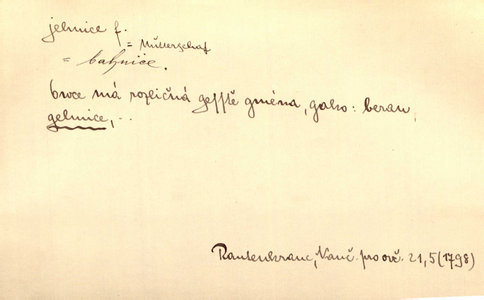 jehnice f.
= Mutterschaf
= bahnice.
Owce má rozličná gesstě gména, gako: beran,
gehnice, ..
Rautenkranc, Nauč. pro ovč. 21,5 (1798)